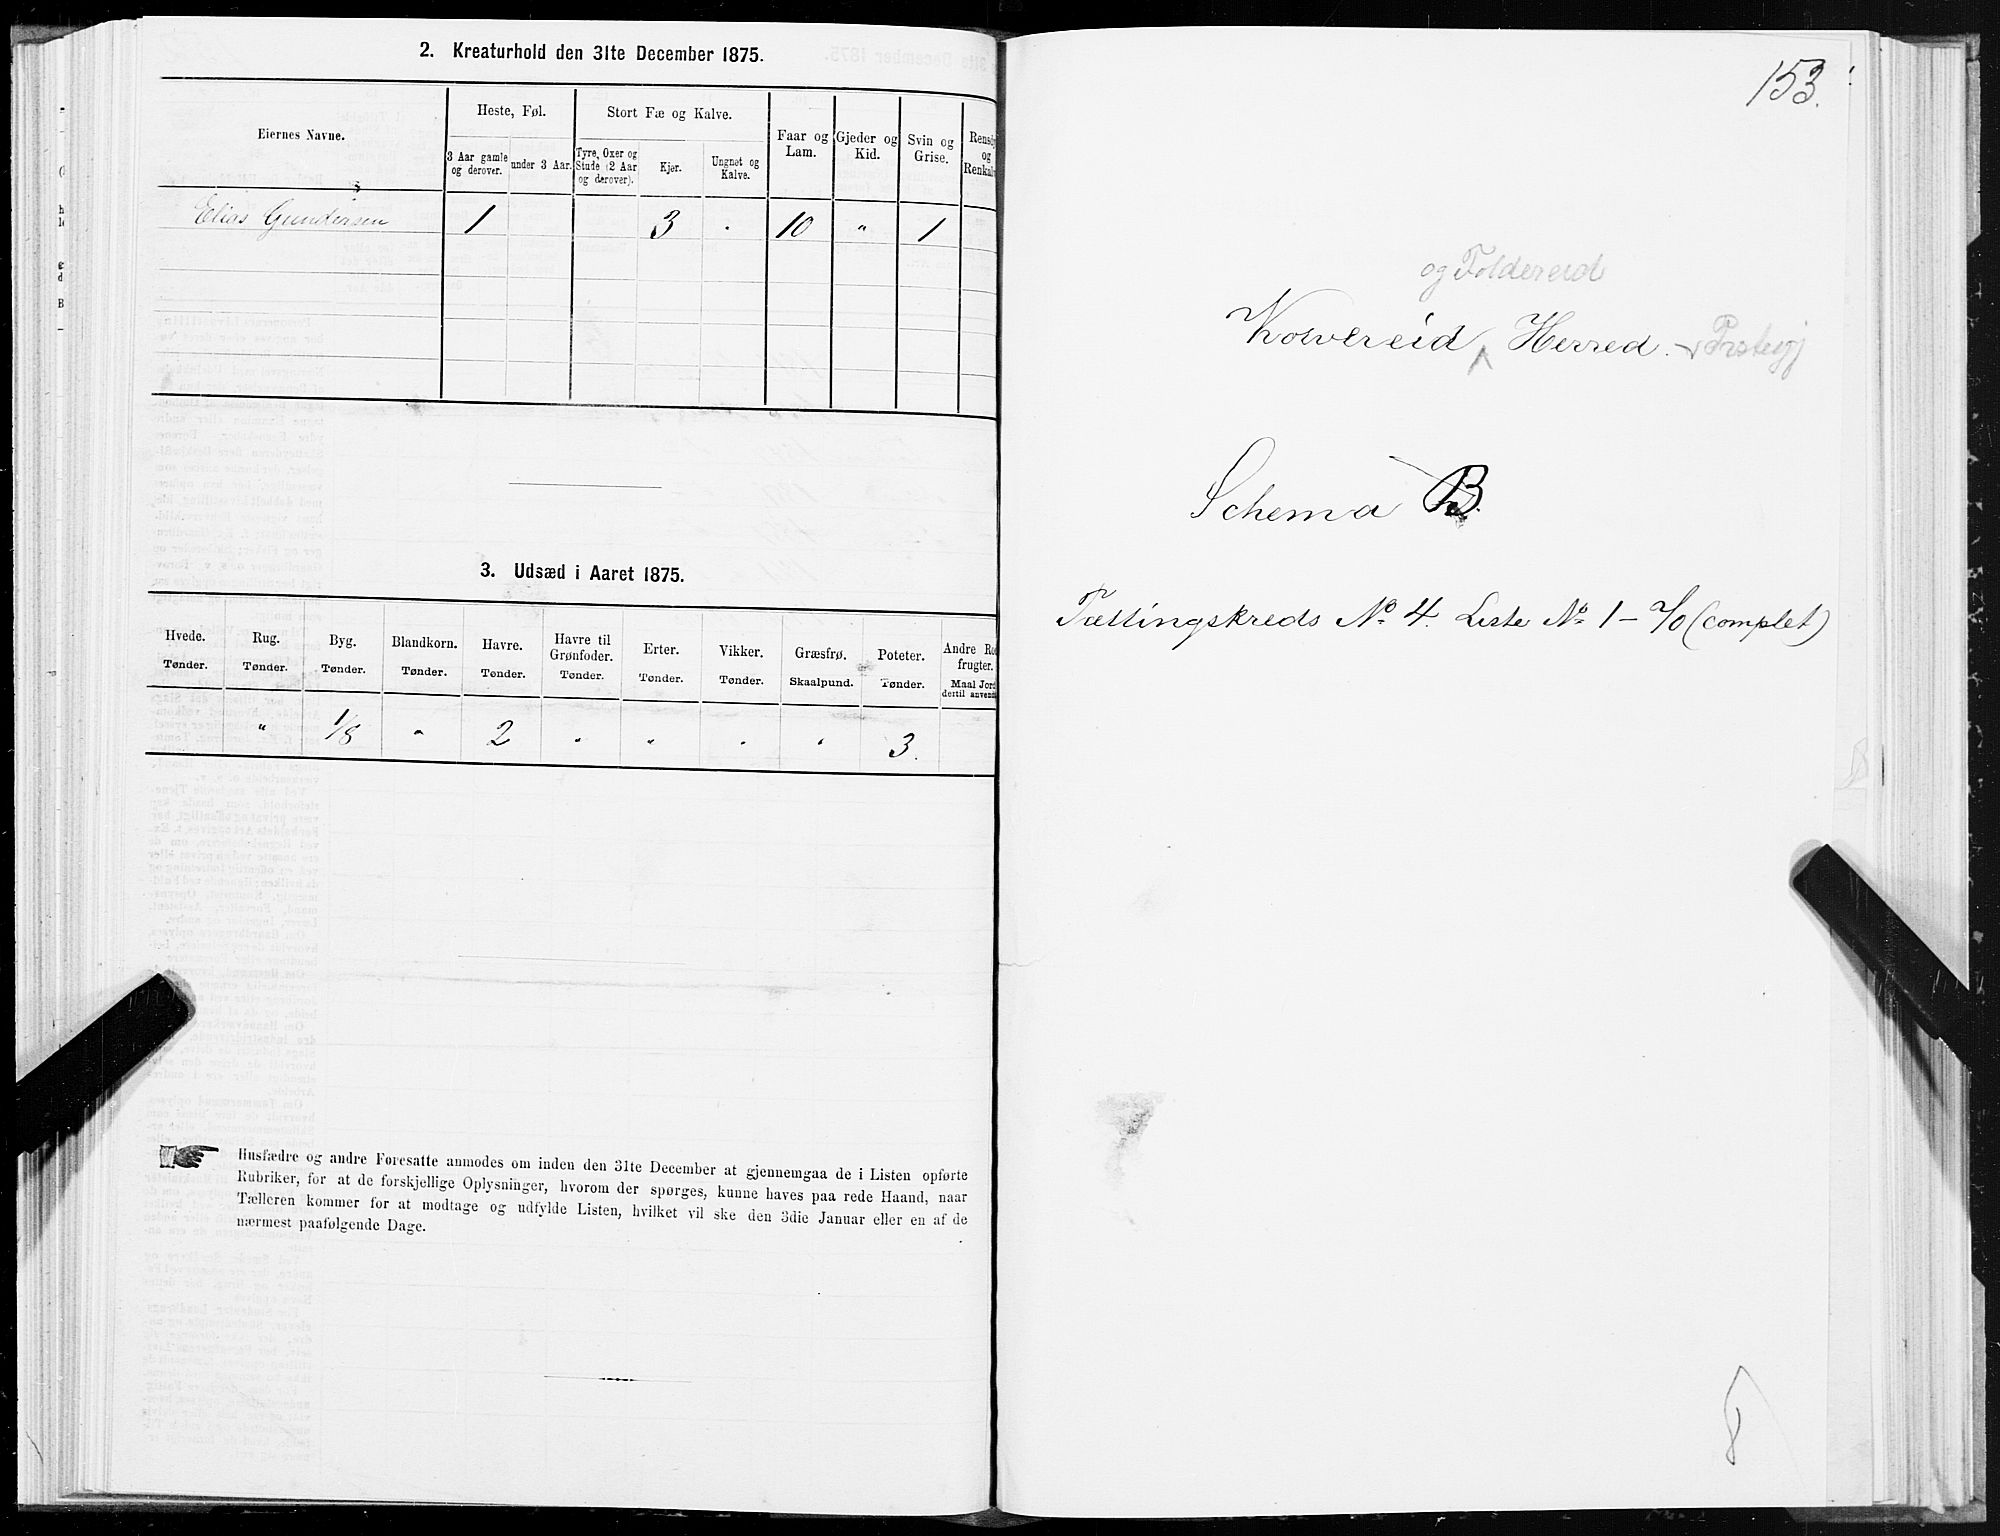 2. Kreaturhold den 31te December 1875.
Eiernes Navne.
Heste, Føl.
Stort Fæ og Kalve.
Faar og Lam.
Gjeder og Kid.
Svin og Grise.
og
3 Aar gamle og derover.
under 3 Aar.
Tyre, Oxer og Stude (2 Aar og derover).
Kjør.
Ungnøt og Kalve.
Elias Gundersen 1 3 " 10 " 1
3. Udsæd i Aaret 1875.
Hvede. Rug. Byg. Blandkorn. Havre. Havre til Grønfoder. Erter. Vikker. Græsfrø. Poteter. Andre
frugter.
Tønder. Tønder. Tønder. Tønder. Tønder. Tønder. Tønder. Tønder. Skaalpund. Tønder. Maal Jord
dertil
" 1/8 " 2 " " " " 3.
Husfædre og andre Foresatte anmodes om inden den 31te December at gjennemgaa de i Listen opførte
Rubriker, for at de forskjellige Oplysninger, hvorom der spørges, kunne haves paa rede Haand, naar
Tælleren kommer for at modtage og udfylde Listen, hvilket vil ske den 3die Januar eller en af de
nærmest paafølgende Dage.
153.
og Foldereid
Kolvereid Herred
Schema B.
Tællingskreds No 4. Liste No 1 - 70 (complet)